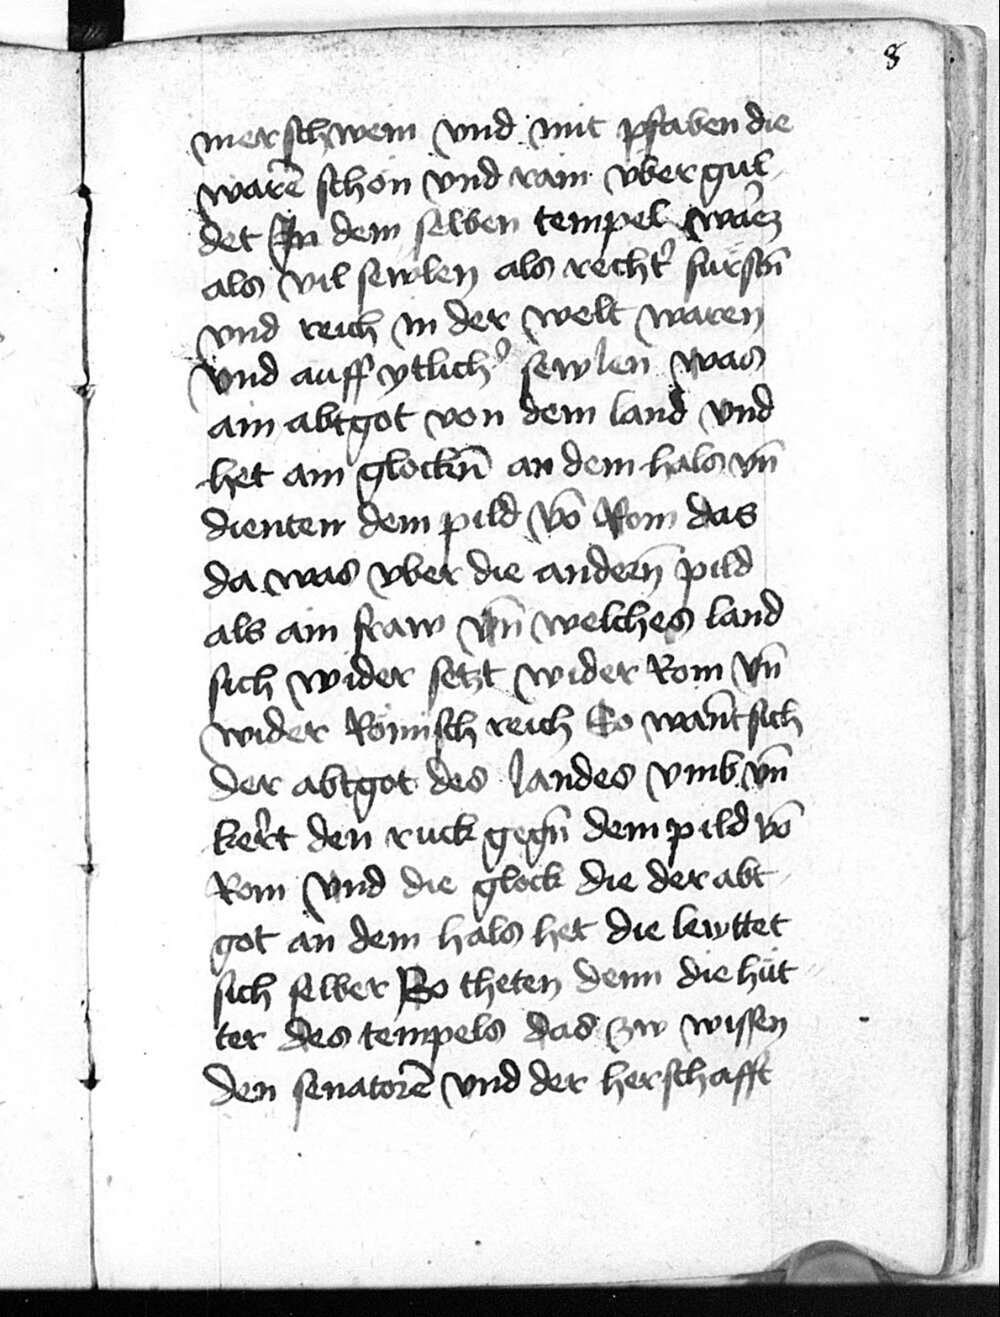 8
merschwein vnd mit pfaben die
warē schon vnd rain vber gul
det In dem selben tempel warn
als vil sewlen als recht' furstn̄
vnd reich in der welt waren
vnd auff ytlich' sewlen was
ain abtgot von dem land vnd
het ain glockn̄ an dem hals vn̄
dienten dem pild vō Rom das
da was vber die andern̄ pild
als ain fraw vn̄ welches land
sich wider setzt wider Rom vn̄
wider Römisch reich So wan̄t sich
der abtgot des landes vmb vn̄
kert den ruck gegn̄ dem pild vō
Rom vnd die glock die der abt
got an dem hals het die lewttet
sich selber So theten denn die hüt
ter des tempels das zw wissen
den senatorē vnd der herschafft